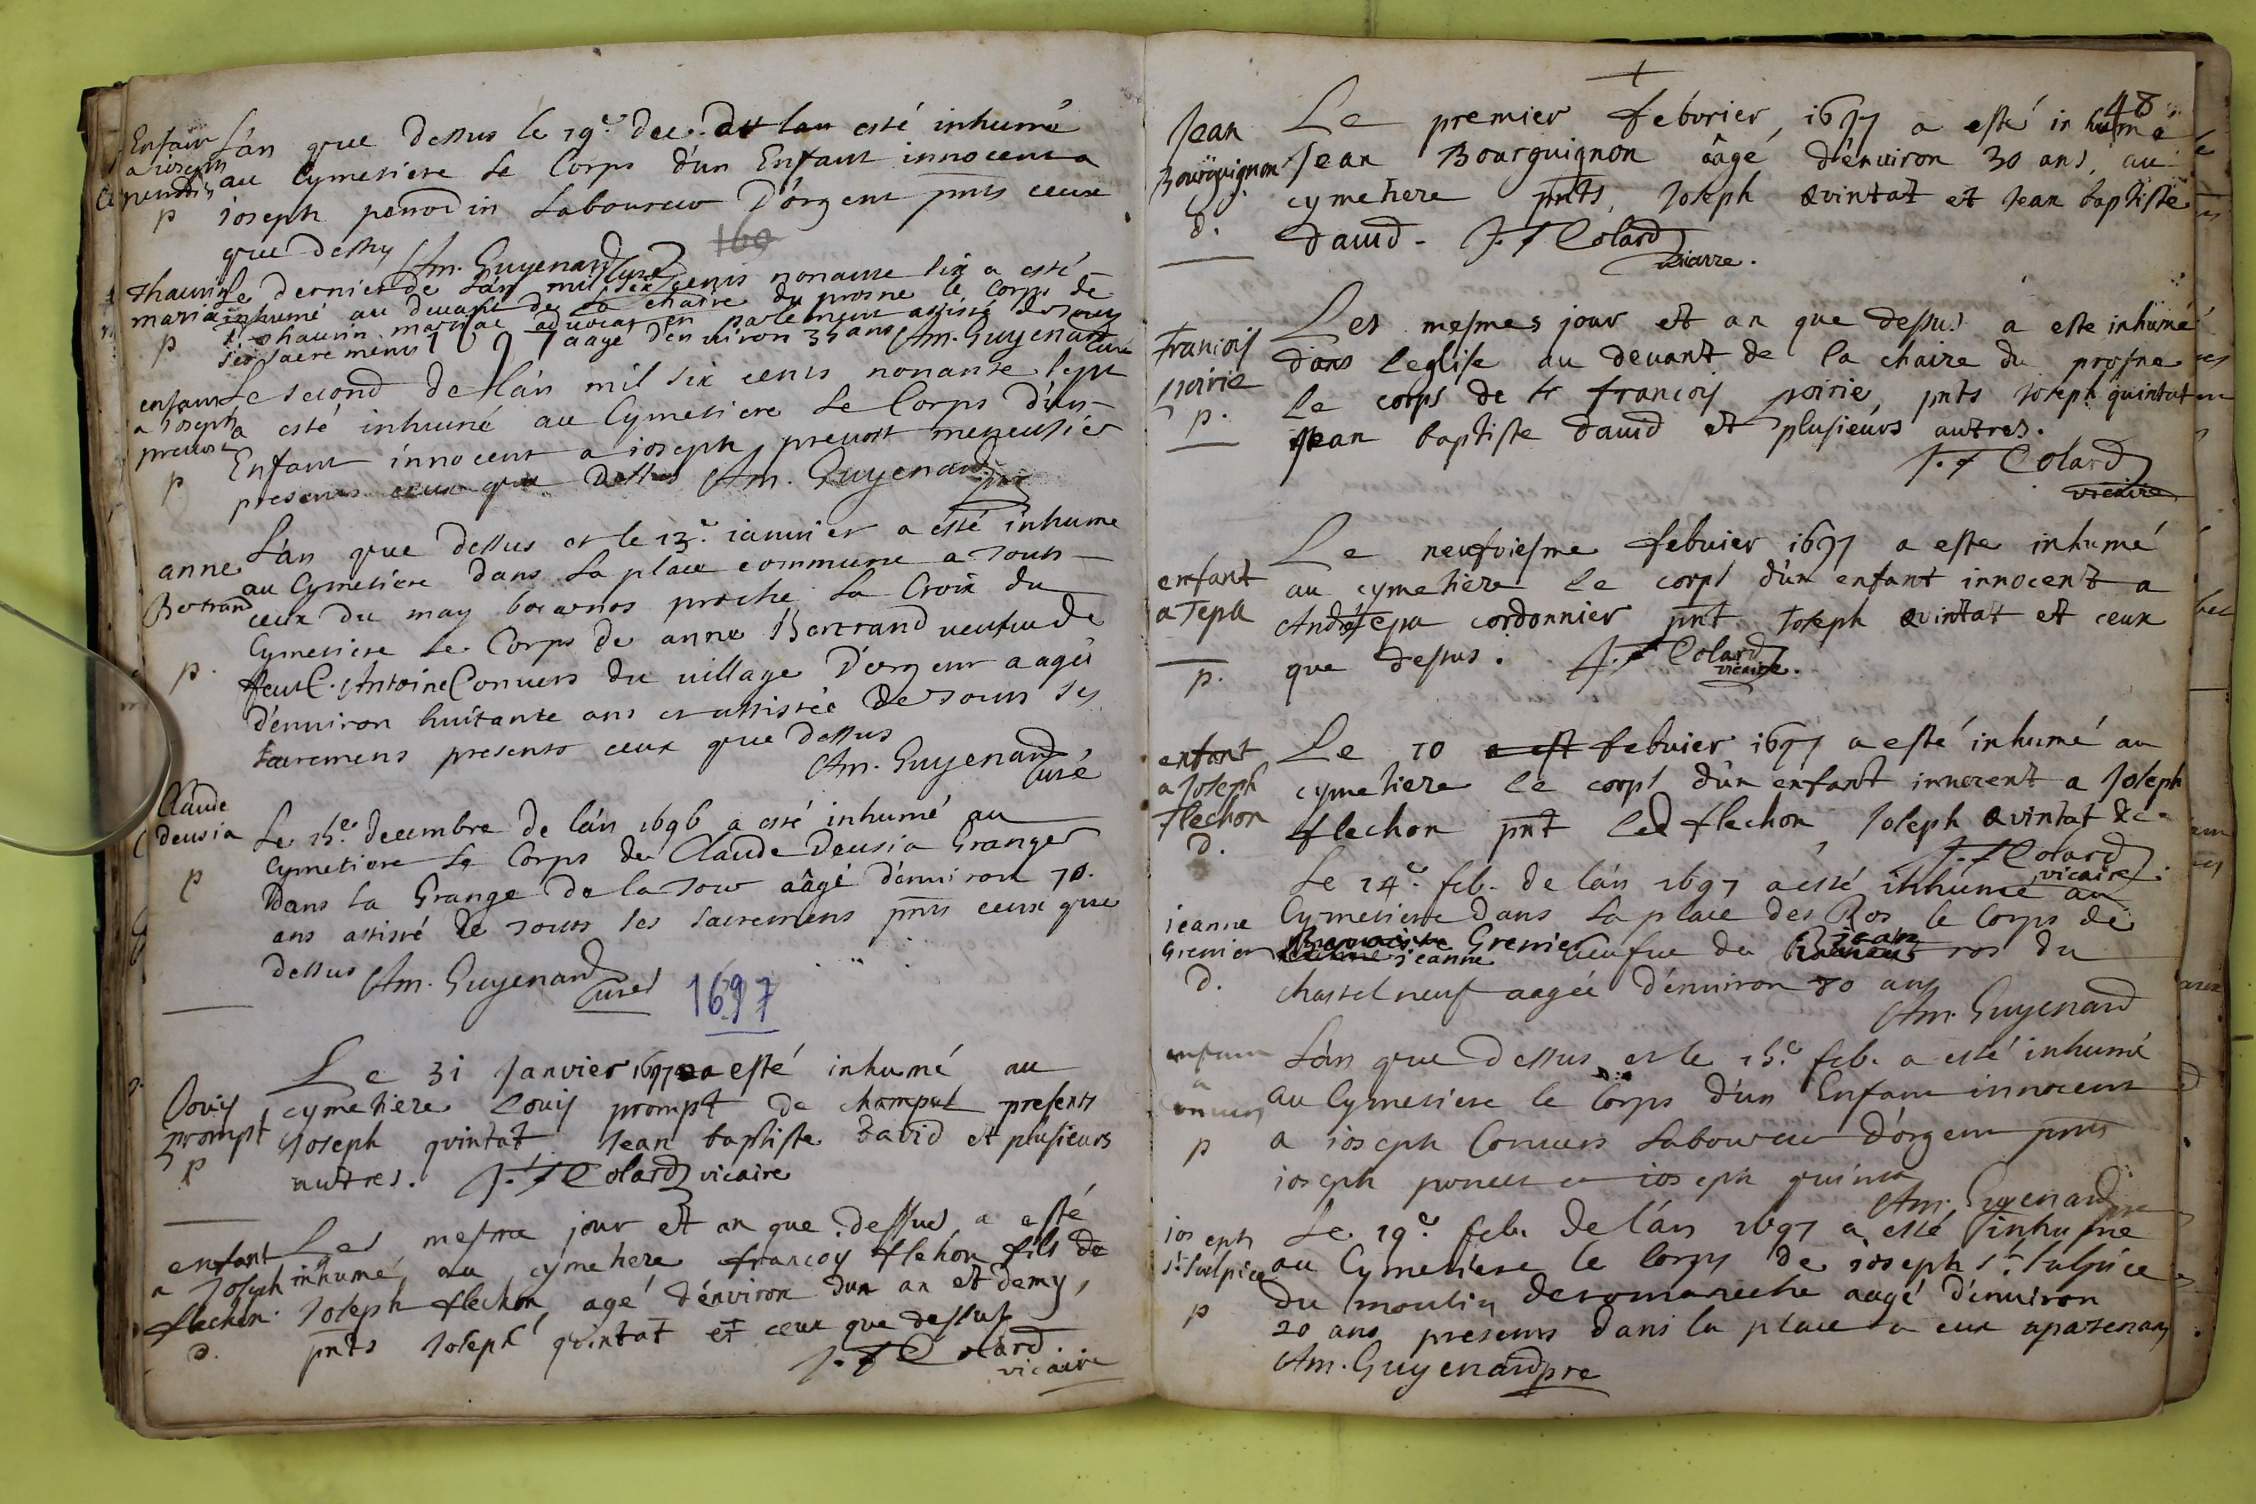 Enfant
a ioseph
penodin
p
L'an que dessus le 19.e dec. a esté inhumé
au Cymetiere le Corps d'un Enfant innocent a
ioseph penodin Laboureur D'orgent pnts ceux
que dessus Am. Guyenard Curé
160
Thaurin
mariae
p
Le dernier de l'an mil six cents nonante six a esté
inhumé au devant de la chaire du prosne le Corps de
Thaurin advocat en parlement assisté de tous
ses sacrements aagé d'enuiron 35 ans Am. Guyenard
Curé
enfant
a Joseph
prevost
p
Le second de l'an mil six cents nonante sept
a esté inhumé au Cymetiere le Corps d'un
Enfant innocent a ioseph prevost menusier
presents ceux que dessus Am. Guyenard
pre
anne
Bertrand
p.
L'an que dessus et le 13.e ianuier a esté inhumé
au Cymetiere dans la place commune a tous
ceux du may proche la Croix du
Cymetiere le Corps de anne Bertrand veufue de
feu C. Antoine Conuers du village D'orgent aagée
d'enuiron huitante ans et assistée de tous ses
sacremens presents ceux que dessus
Am. Guyenard
Curé
Claude
Deusia
p
Le 15.e decembre de l'an 1696 a esté inhumé au
Cymetiere le Corps de Claude Deusia Granger
Dans la Grange de la Tour aâgé d'enuiron 70.
ans assisté de tous ses sacremens pnts ceux que
dessus Am. Guyenard
Curé
1697
Louis
prompt
p
Le 31 Janvier 1697 a esté inhumé au
cymetiere Louis prompt de champet presents
Joseph quintat Jean baptiste David et plusieurs
autres. J. f Colard vicaire
enfant
a Joseph
flechon
d.
Les mesme jour et an que dessus a esté
inhumé au cymetiere francoy flehon fils de
Joseph flechon, agé d'environ dun an et demy,
pnts Joseph quintat et ceux que dessus
J. f Colard
vicaire
48
Jean
Bourguignon
d.
Le premier febvrier, 1697 a esté inhumé
Jean Bourguignon âagé d'enuiron 30 ans, au
cymetiere pnts, Joseph Qvintat et Jean baptiste
David. J. f Colard
vicaire.
francois
poirie
p.
Les mesmes jour et an que dessus a este inhumé
dans leglise au devant de la chaire du prosne
le corps de francois poirie, pnts Joseph quintat
Jean baptiste david et plusieurs autres.
J. f Colard
vicaire
enfant
a Tepa
p.
Le neufviesme febuier 1697 a este inhumé
au cymetiere le corps d'un enfant innocent a
André Tepa cordonnier pnt Joseph Qvintat et ceux
que dessus. J. f Colard
vicaire.
enfant
a Joseph
flechon
d.
Le 10 a est febuier 1697 a esté inhumé au
cymetiere le corps d'un enfant innocent a Joseph
flechon pnt led flechon, Joseph Qvintat &c.
J. f Colard
vicaire.
ieanne
Grenier
d.
Le 14.e feb. de l'an 1697 a esté inhumé au
Cymetiere dans la place des Ros le Corps de
ieanne Grenier veufue de Jean ros du
chastelneuf aagée d'enuiron 70 ans
Am. Guyenard
enfant
a
conuers
p
L'an que dessus et le 15.e feb. a esté inhumé
au Cymetiere le Corps d'un Enfant innocent
a ioseph Conuers Laboureur D'orgent pnts
ioseph et ioseph quintat
Am. Guyenard
pre
ioseph
St. Sulpice
p
Le 19.e feb. de l'an 1697 a esté inhumé
au Cymetiere le Corps de ioseph St. Sulpice
du moulin deromaneche aagé d'enuiron
20 ans presents dans la place a eux apartenant
Am. Guyenard pre